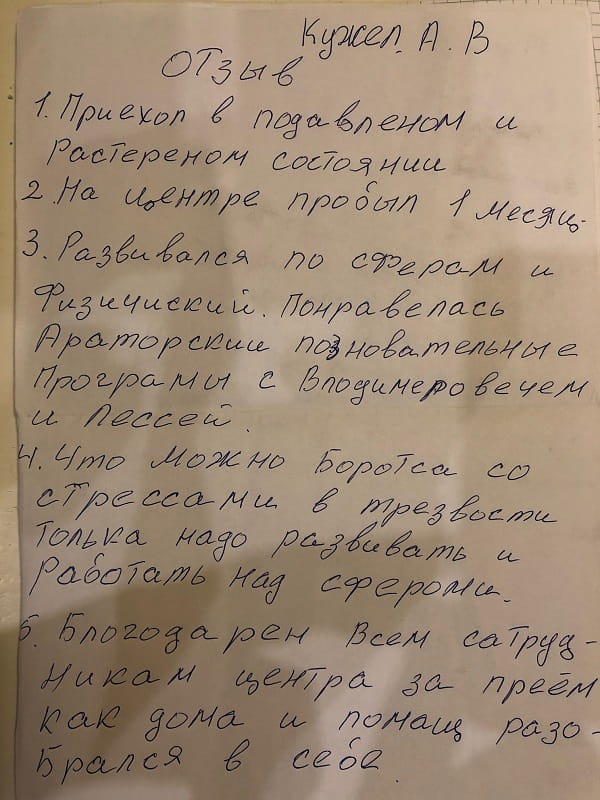 Кужел. А. В
Отзыв
1. Приехал в подавленом и
Растереном состоянии
2. На центре пробыл 1 месяц.
3. Развивался по сферам и
Физичиский. Понравелась
Араторский позновательные
Програмы с Владимеровечем
и Лессей.
4. Что можно Боротса со
стрессами в трезвости
только надо развивать и
Работать над сферами.
5. Благодарен Всем сатруд-
никам центра за преём
как дома и помащ разо-
брался в себе